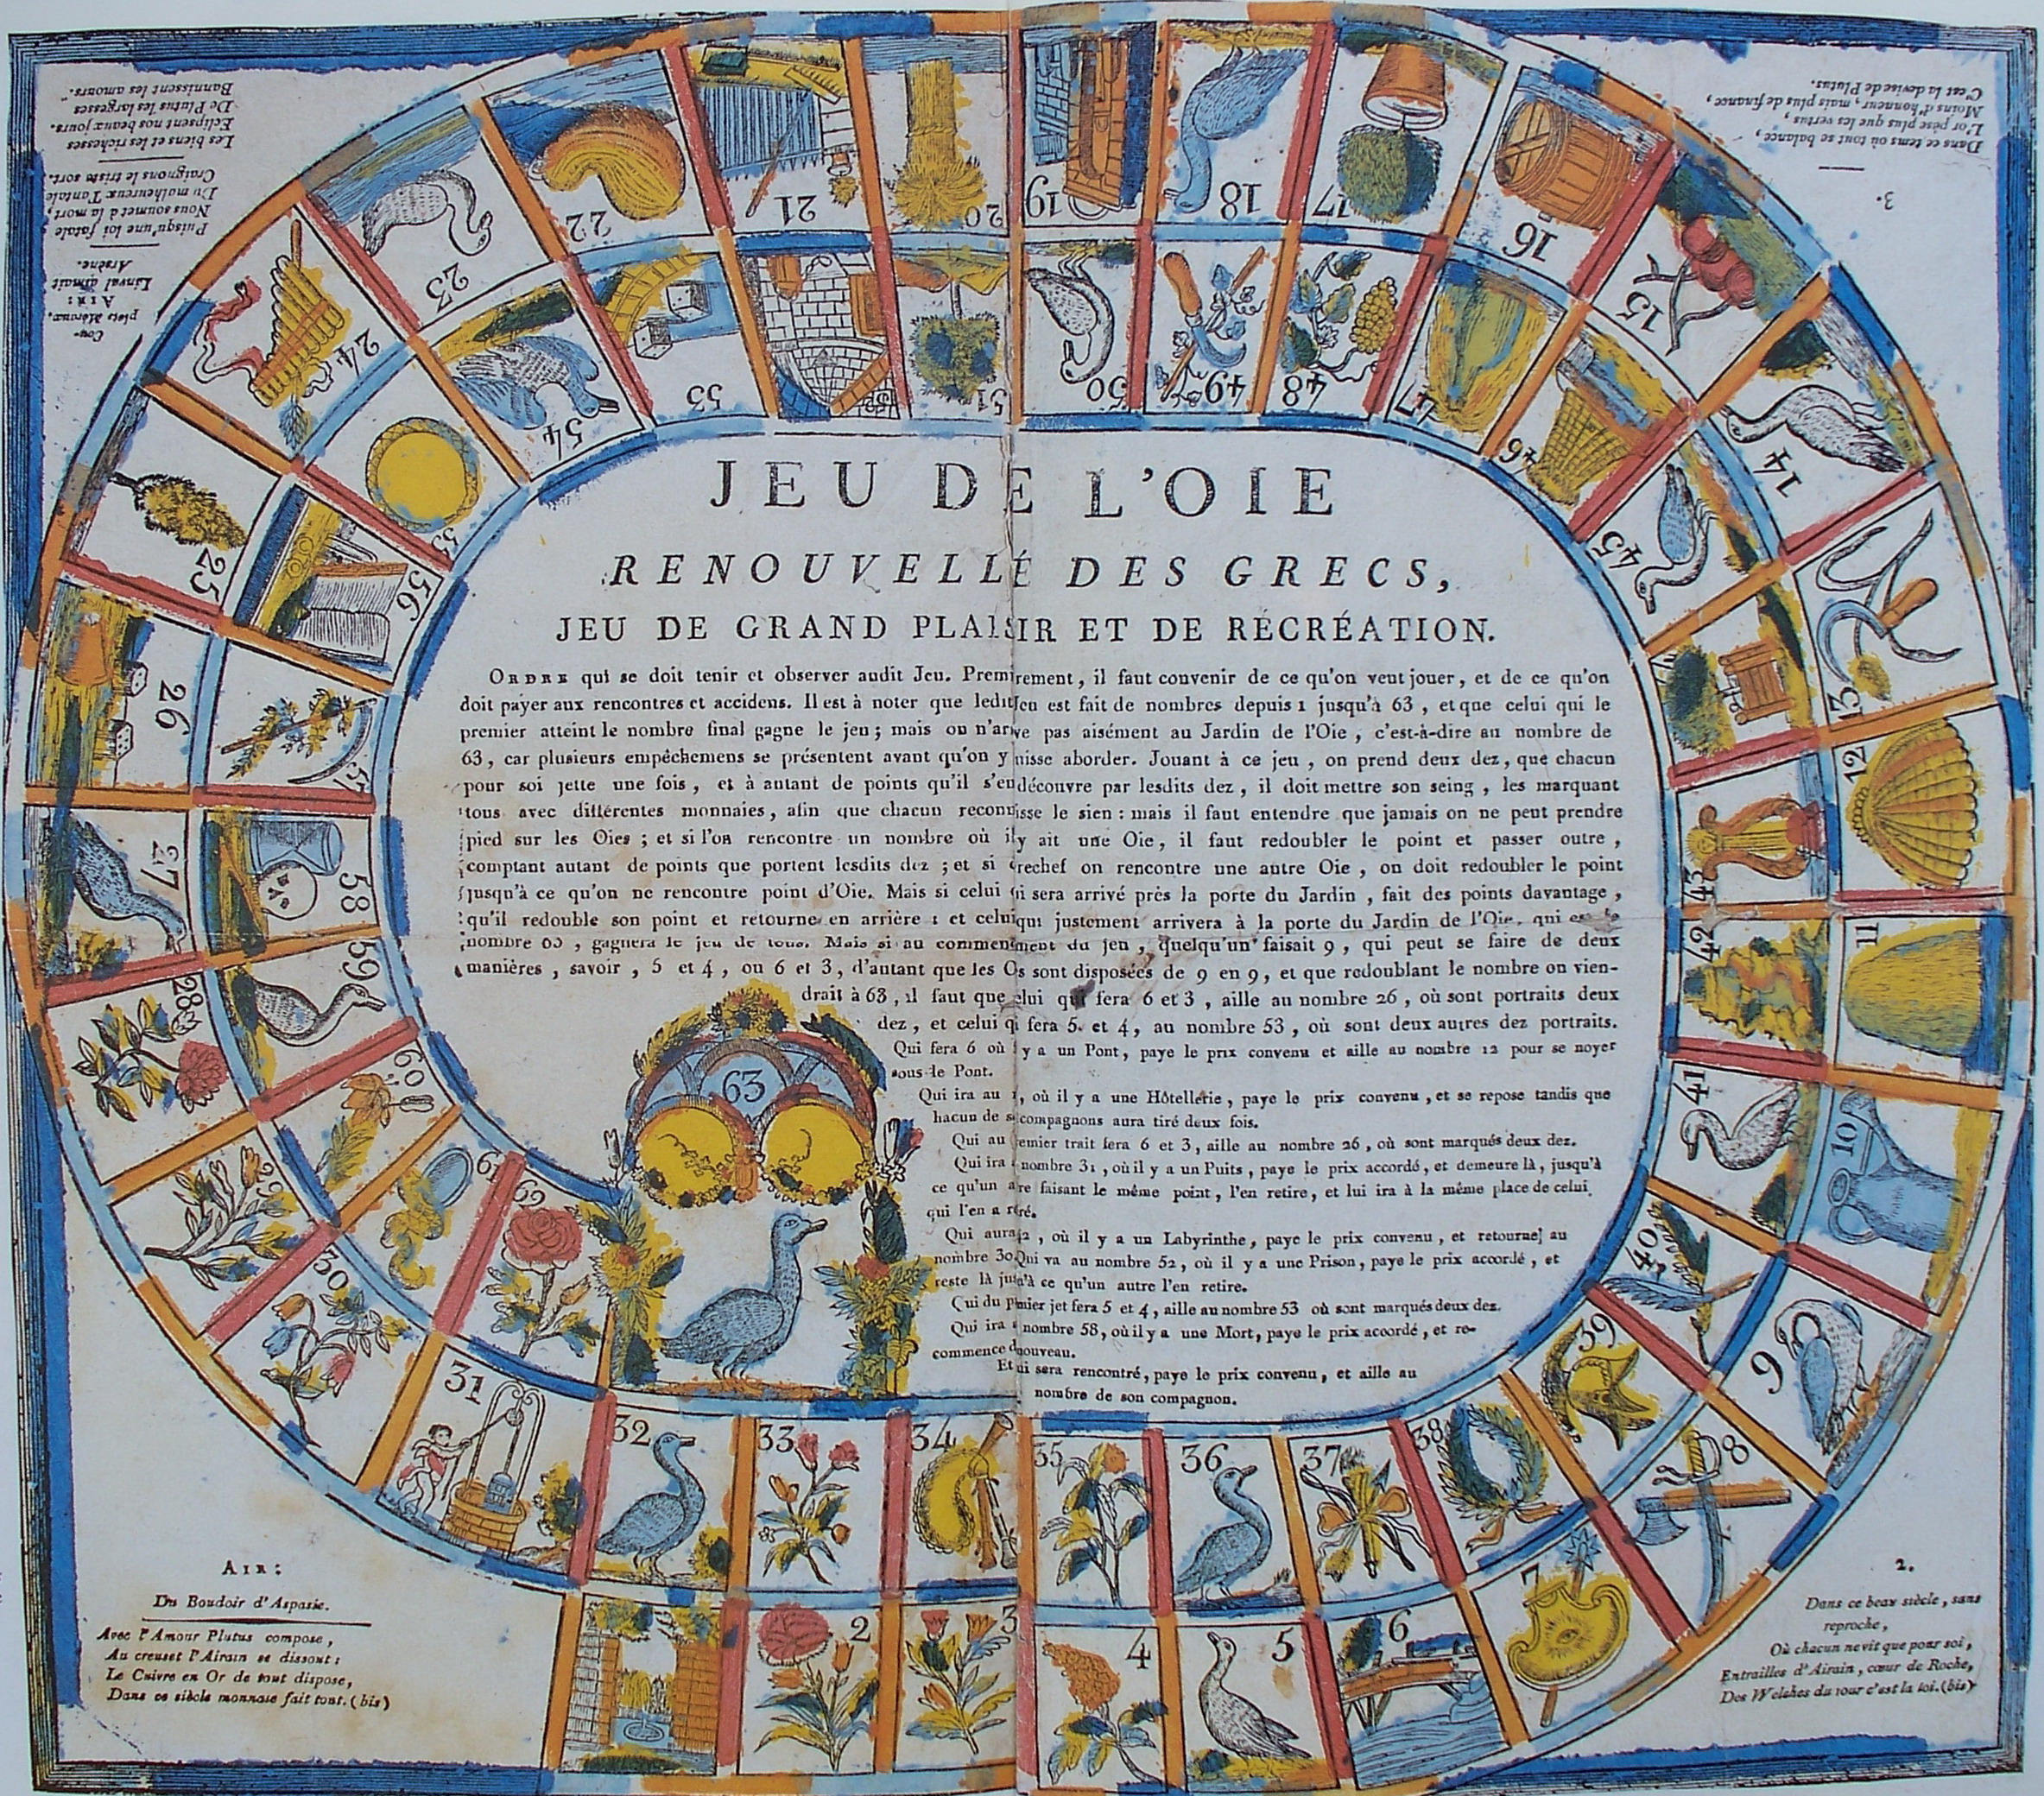 JEU DE L'OIE
RENOUVELLÉ DES GRECS,
JEU DE GRAND PLAISIR ET DE RÉCRÉATION.
ORDRE qui se doit tenir et observer audit Jeu. Premirement, il faut convenir de ce qu'on veut jouer, et de ce qu'on
doit payer aux rencontres et accidens. Il est à noter que ledit Jeu est fait de nombres depuis 1 jusqu'à 63, et que celui qui le
premier atteint le nombre final gagne le jeu; mais on n'arive pas aisément au Jardin de l'Oie, c'est-à-dire au nombre de
63, car plusieurs empêchemens se présentent avant qu'on y uisse aborder. Jouant à ce jeu, on prend deux dez, que chacun
pour soi jette une fois, et à autant de points qu'il s'en découvre par lesdits dez, il doit mettre son seing, les marquant
tous avec différentes monnaies, afin que chacun reconnisse le sien: mais il faut entendre que jamais on ne peut prendre
pied sur les Oies; et si l'on rencontre un nombre où il y ait une Oie, il faut redoubler le point et passer outre,
comptant autant de points que portent lesdits dez; et si derechef on rencontre une autre Oie, on doit redoubler le point
jusqu'à ce qu'on ne rencontre point d'Oie. Mais si celui qui sera arrivé près la porte du Jardin, fait des points davantage,
qu'il redouble son point et retourne en arrière: et celui qui justement arrivera à la porte du Jardin de l'Oie, qui est le
nombre 63, gagnera le jeu de tous. Mais si au commencement du jeu, quelqu'un faisait 9, qui peut se faire de deux
manières, savoir, 5 et 4, ou 6 et 3, d'autant que les Oies sont disposées de 9 en 9, et que redoublant le nombre on vien-
drait à 63, il faut que celui qui fera 6 et 3, aille au nombre 26, où sont portraits deux
dez, et celui qui fera 5 et 4, au nombre 53, où sont deux autres dez portraits.
Qui fera 6 où il y a un Pont, paye le prix convenu et aille au nombre 12 pour se noyer
sous le Pont.
Qui ira au , où il y a une Hôtellerie, paye le prix convenu, et se repose tandis que
chacun de ses compagnons aura tiré deux fois.
Qui au premier trait fera 6 et 3, aille au nombre 26, où sont marqués deux dez.
Qui ira au nombre 31, où il y a un Puits, paye le prix accordé, et demeure là, jusqu'à
ce qu'un autre faisant le même point, l'en retire, et lui ira à la même place de celui
qui l'en a retiré.
Qui aura 42, où il y a un Labyrinthe, paye le prix convenu, et retourne au
nombre 30. Qui va au nombre 52, où il y a une Prison, paye le prix accordé, et
reste là jusqu'à ce qu'un autre l'en retire.
Qui du premier jet fera 5 et 4, aille au nombre 53 où sont marqués deux dez.
Qui ira au nombre 58, où il y a une Mort, paye le prix accordé, et re-
commence de nouveau.
Et qui sera rencontré, paye le prix convenu, et aille au
nombre de son compagnon.
AIR:
Du Boudoir d'Aspasie.
Avec l'Amour Plutus compose,
Au creuset l'Airain se dissout:
Le Cuivre en Or de tout dispose,
Dans ce siècle monnaie fait tout. (bis)
2.
Dans ce beau siècle, sans
reproche,
Où chacun ne vit que pour soi,
Entrailles d'Airain, cœur de Roche,
Des Welches du jour c'est la loi. (bis)
3.
Dans ce tems où tout se balance,
L'or pèse plus que les vertus,
Moins d'honneur, mais plus de finance,
C'est la devise de Plutus.
Cou-
plets Moraux.
AIR:
Linval aimait
Arsène.
Puisqu'une loi fatale
Nous soumet à la mort,
Du malheureux Tantale
Craignons le triste sort.
Les biens et les richesses
Eclipsent nos beaux jours.
De Plutus les largesses
Bannissent les amours.
2
3
4
5
6
7
8
9
10
11
12
13
14
15
16
17
18
19
20
21
22
23
24
25
26
27
28
29
30
31
32
33
34
35
36
37
38
39
40
41
42
43
45
46
47
48
49
50
51
52
53
54
55
56
57
58
59
60
61
62
63